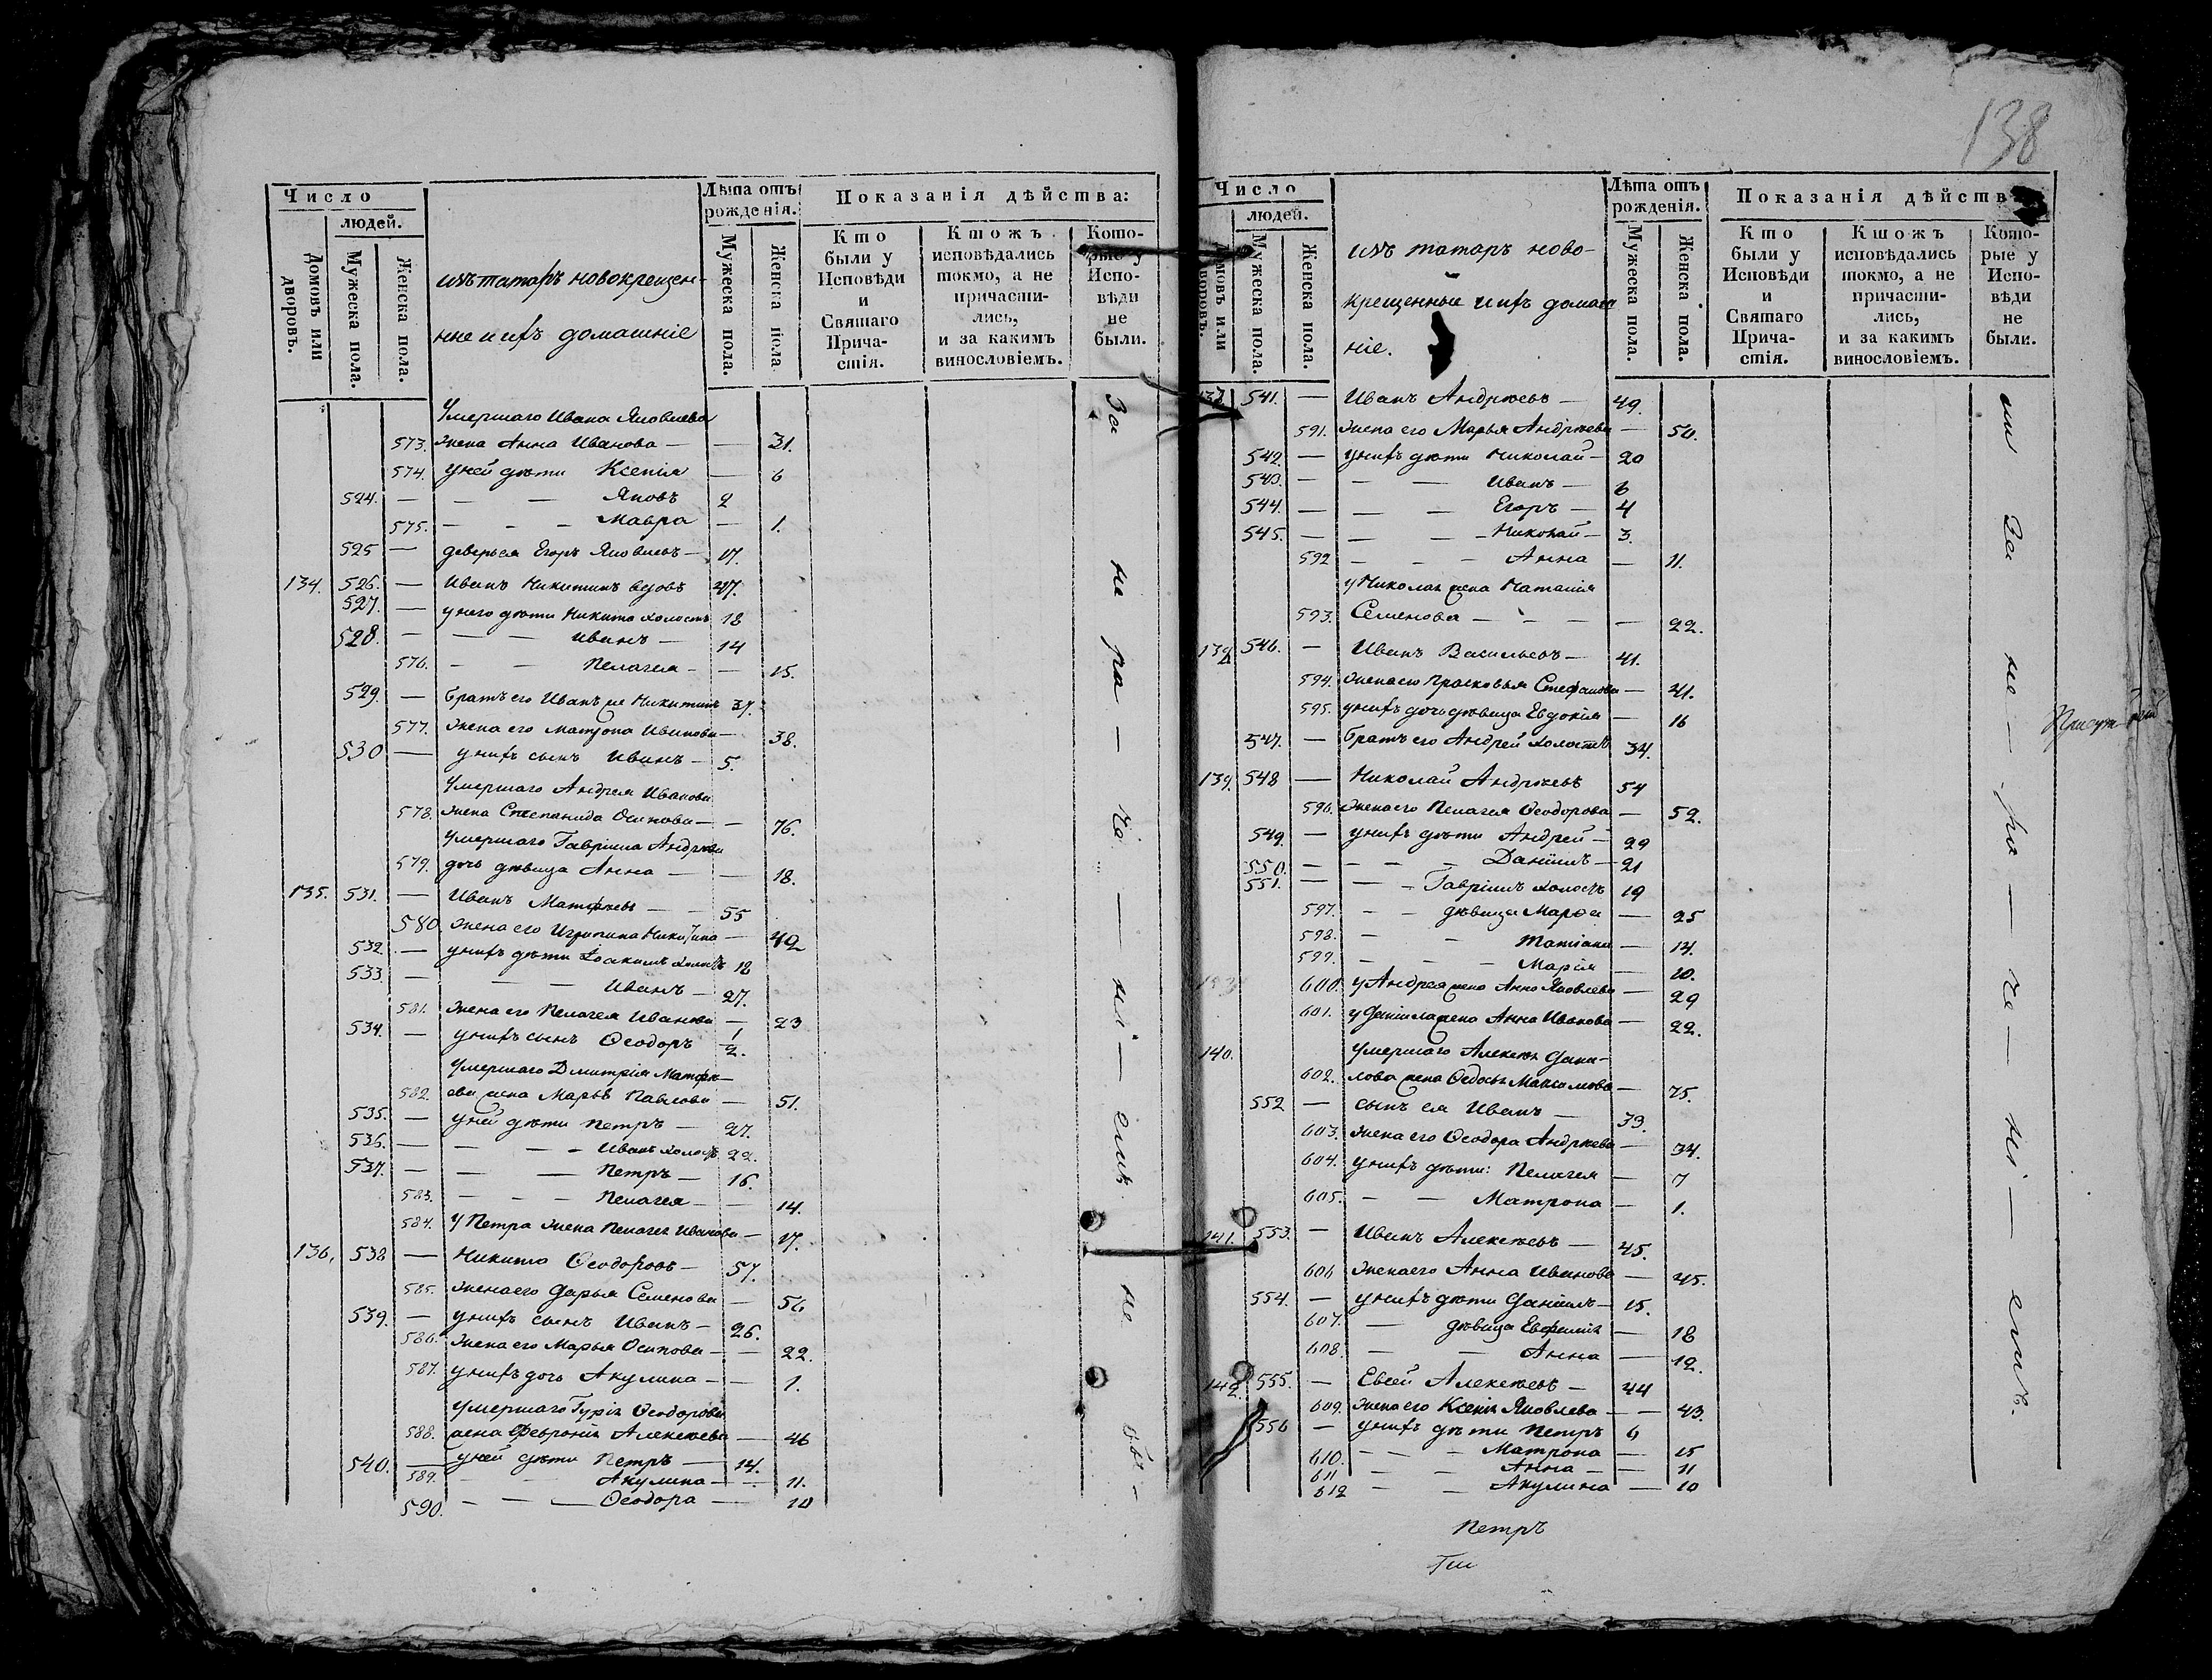 138
Число
людей.
Домовъ или дворовъ.
Мужеска пола.
Женска пола.
изъ татаръ новокрещен-
ные и ихъ домашніе
Лѣта отъ рожденія.
Мужеска пола.
Женска пола
Показанія дѣйства:
Кто были у Исповѣди и Святаго Прича- стія.
Ктожъ исповѣдались токмо, а не причасти- лись, и за какимъ винословіемъ.
Кото- рые у Испо- вѣди не были.
Умершаго Ивана Яковлева
573. жена Анна Иванова — — 31.
574. у ней дѣти Ксенія — 6
524. — — — Яковъ 2
575. — — — Мавра — 1.
525 — деверь ея Егоръ Яковлевъ — 17.
134. 526. — Иванъ Никитинъ вдовъ 47.
527. — у него дѣти Никита холостъ 18
528. — — — Иванъ — 14
576. — — Пелагея — — 15.
529. — братъ его Иванъ же Никитинъ 37.
577. жена его Матрона Иванова — 38.
530 — у нихъ сынъ Иванъ — 5.
Умершаго Андрея Иванова
578. жена Степанида Осипова — — 76.
Умершаго Гавріила Андреева
579. дочь дѣвица Анна — — 18.
135. 531. — Иванъ Матфеевъ — — 55
580. жена его Игрипина Никитина — 42
532. — у нихъ дѣти Іоакимъ холостъ 18
533. — — — Иванъ — 27.
581. жена его Пелагея Иванова — 23
534. — у нихъ сынъ Ѳеодоръ 1/2.
Умершаго Дмитрія Матфе-
582. ева жена Марья Павлова — 51.
535. — у ней дѣти Петръ — 27.
536. — — — Иванъ холостъ 22.
537. — — — Петръ — 16.
583. — — — Пелагея — — 14.
584. у Петра жена Пелагея Иванова — 17.
136. 538 — Никита Ѳеодоровъ — 57.
585. жена его Дарья Семенова — 56
539. — у нихъ сынъ Иванъ — 26.
586. жена его Марья Осипова — — 22.
587. у нихъ дочь Акулина — — 1.
умершаго Гурія Ѳеодорова
588. жена Февронія Алексеева — 46
540. — у ней дѣти Петръ — 14.
589. — — Акулина — — 11.
590. — — — Ѳеодора — 10
За не ра — че — ні — емъ не бы —
Число
людей.
Домовъ или дворовъ.
Мужеска пола.
Женска пола.
изъ татаръ ново-
крещенные и ихъ домаш
ніе.
Лѣта отъ рожденія.
Мужеска пола.
Женска пола.
Показанія дѣйств
Кто были у Исповѣди и Святаго Прича- стія.
Ктожъ исповѣдались токмо, а не причасти- лись, и за какимъ винословіемъ.
Кото- рые у Испо- вѣди не были.
541. — Иванъ Андреевъ — 49.
591. жена его Марья Андреева — 50.
542. — у нихъ дѣти Николай — 20
543. — — — Иванъ — 6
544. — — — Егоръ — 4
545. — — — Николай — 3.
592 — — — Анна — 11.
у Николая жена Наталія
593. Семенова — — — — 22.
138. 546. — Иванъ Васильевъ — 41.
594. жена его Прасковья Стефанова — 41.
595. у нихъ дочь дѣвица Евдокія — 16
547. — братъ его Андрей холостъ 34.
139. 548 — Николай Андреевъ 54
596. жена его Пелагея Ѳеодорова — 52.
549. — у нихъ дѣти Андрей — 29
550. — — — — Даніилъ — 21
551. — — — Гавріилъ холостъ 19
597. — — дѣвица Марѳа — 25
598. — — Татіана — 14.
599. — — — Марія — 10.
600. у Андрея жена Анна Яковлева — 29
601. у Даніила жена Анна Иванова — 22.
140. Умершаго Алексея Дани-
602. лова жена Ѳедосья Максимова — 75.
552 — сынъ ея Иванъ — 39.
603. жена его Ѳеодора Андреева — 34.
604. у нихъ дѣти: Пелагея — 7
605. — — Матрона — 1.
141. 553. — Иванъ Алексеевъ — 45.
606 жена его Анна Иванова — 45.
554. — у нихъ дѣти Даніилъ — 15.
607. — дѣвица Евфимія — 18
608. — — Анна — 12.
142. 555. — Евсей Алексеевъ — 44
609. жена его Ксенія Яковлева — — 43.
556 — у нихъ дѣти Петръ 6
610. — — — Матрона — 15
611 — — Анна — — 11
612 — — Акулина — 10
Петръ
ли За не — ра — че — ні — емъ.